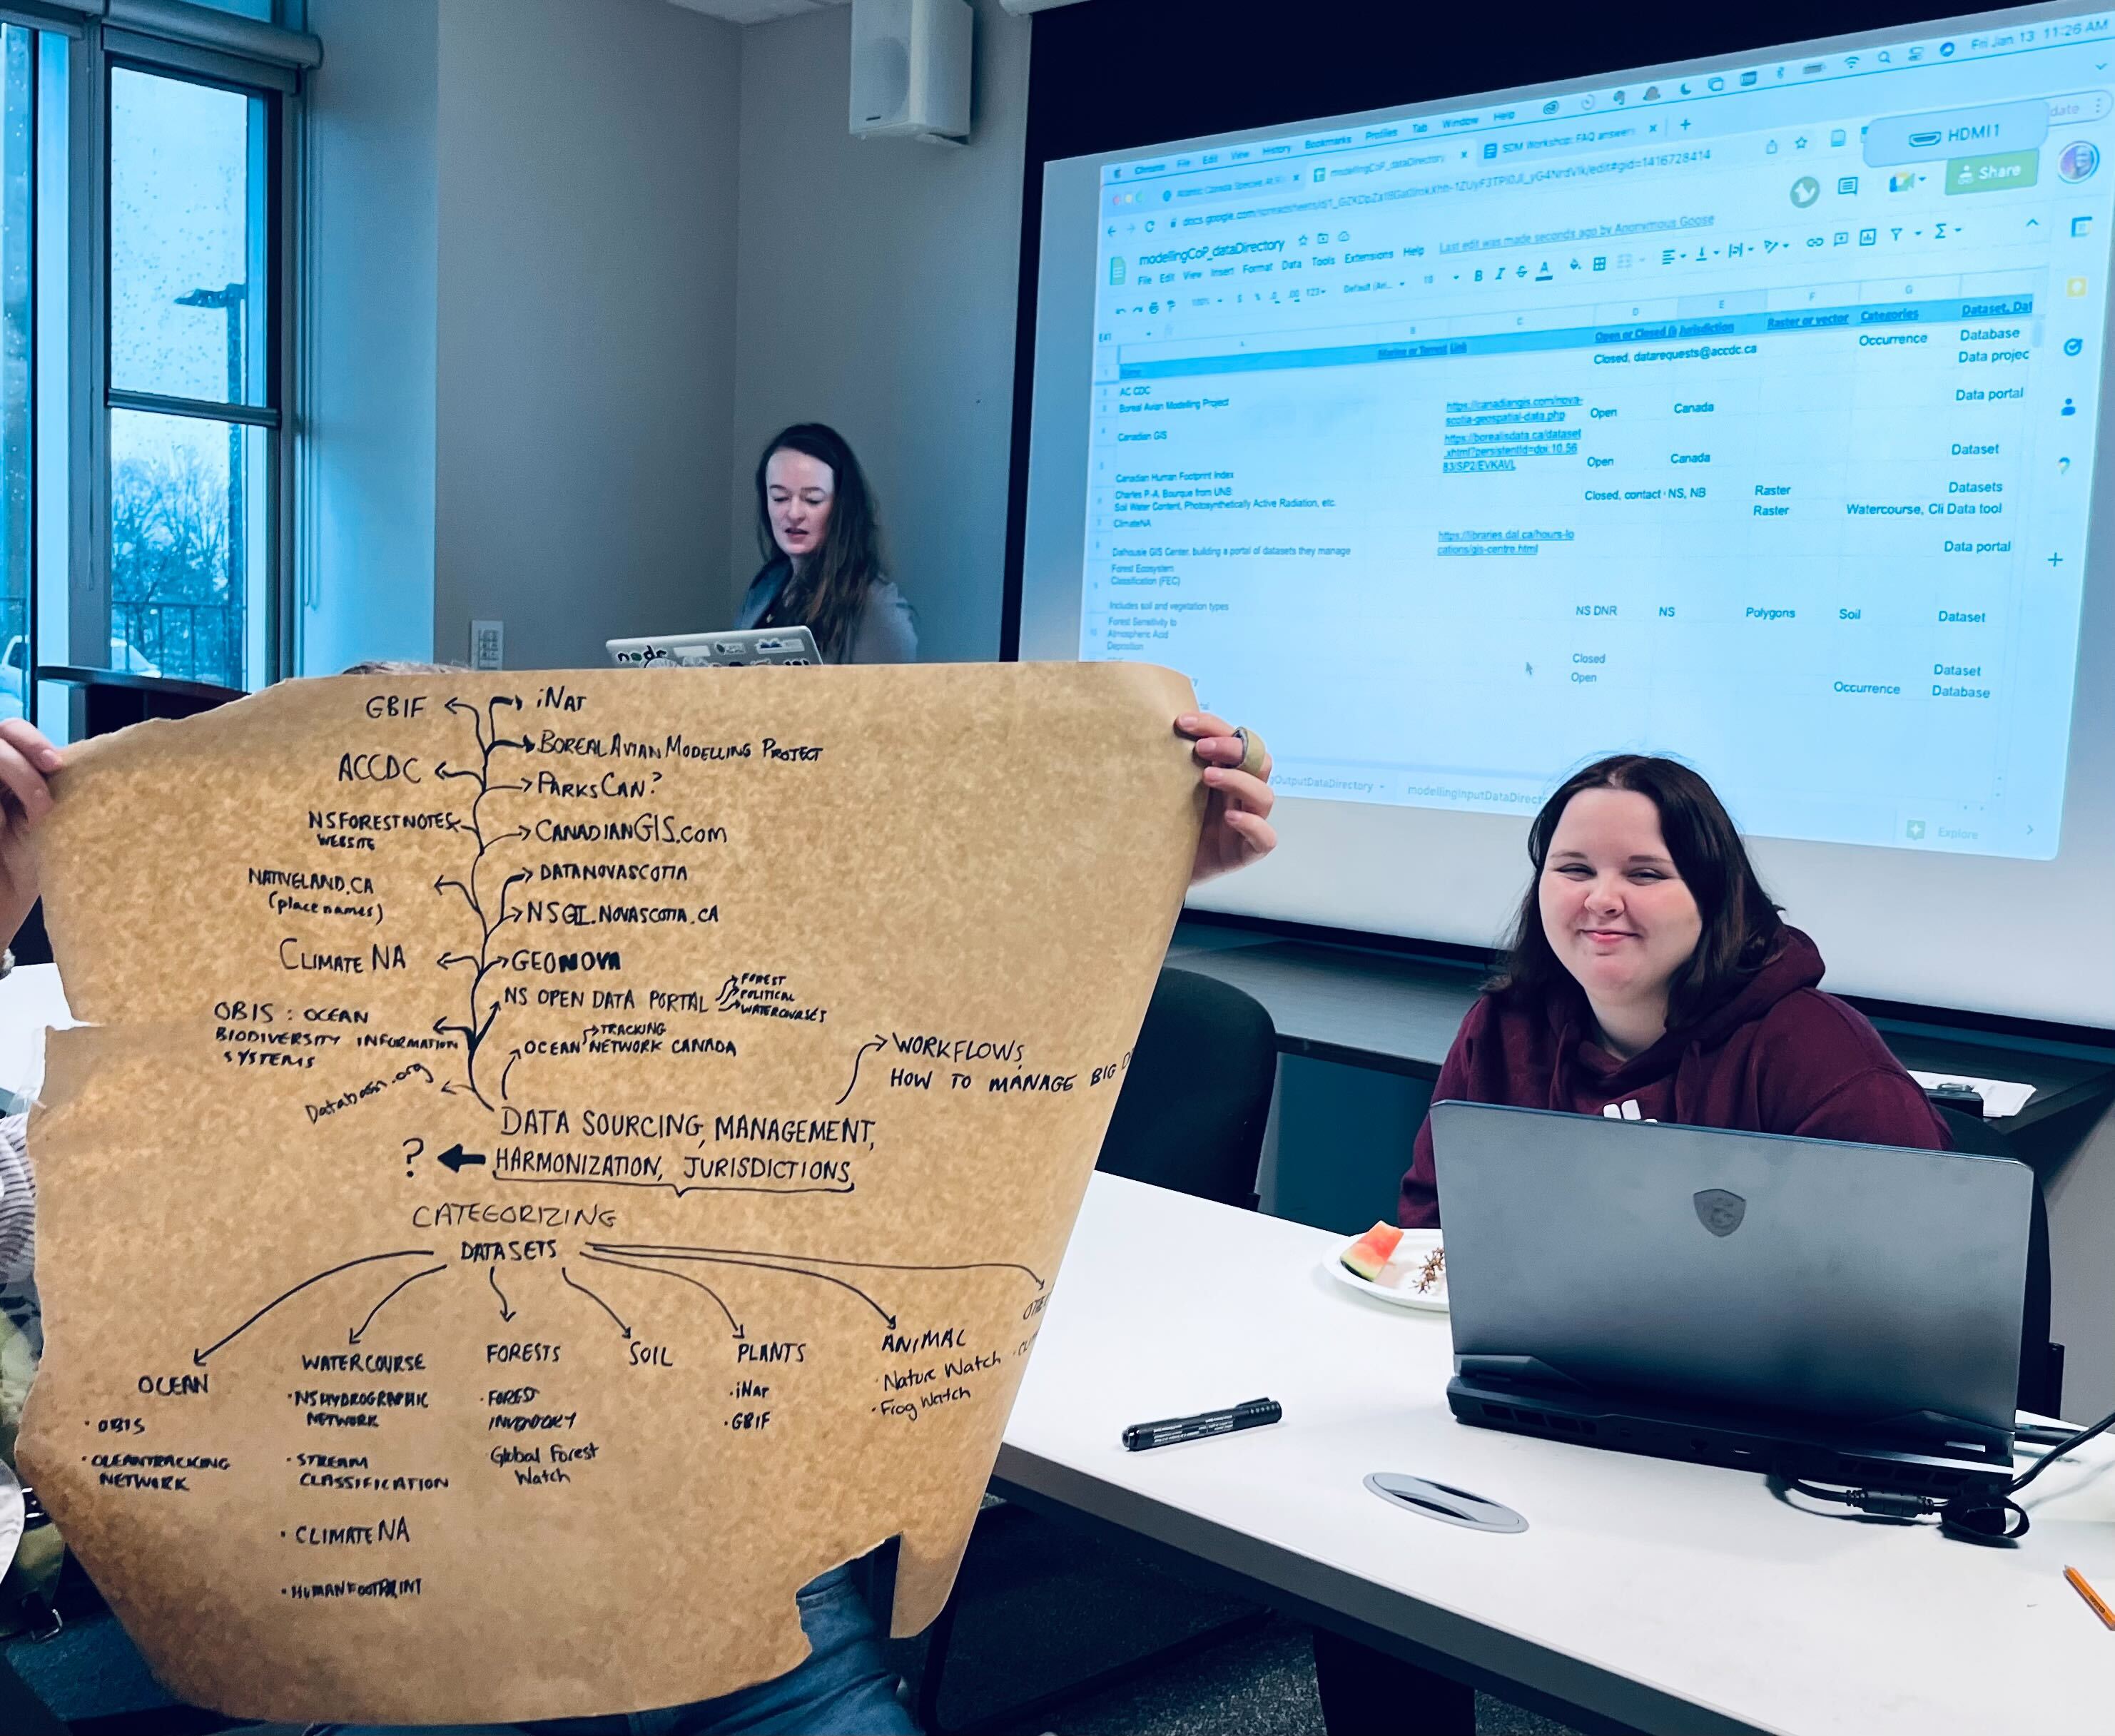 Fri Jan 13 11:26 AM
Chrome File Edit View History Bookmarks Profiles Tab Window Help
HDMI1
modellingCoP_dataDirectory
SDM Workshop: FAQ answers
Share
modellingCoP_dataDirectory
File Edit View Insert Format Data Tools Extensions Help
Last edit was made seconds ago by Anonymous Goose
Name
Link
Open or Closed
Jurisdiction
Raster or vector
Categories
Dataset, Dat
AC CDC
Closed, datarequests@accdc.ca
Occurrence
Database
Boreal Avian Modelling Project
Data projec
Canadian GIS
https://canadiangis.com/nova-
scotia-geospatial-data.php
Open
Canada
Data portal
Canadian Human Footprint Index
https://borealisdata.ca/dataset
.xhtml?persistentId=doi:10.56
83/SP2/EVKAVL
Open
Canada
Dataset
Charles P-A. Bourque from UNB:
Soil Water Content, Photosynthetically Active Radiation, etc.
Closed, contact
NS, NB
Raster
Datasets
ClimateNA
Raster
Watercourse, Cli
Data tool
Dalhousie GIS Center, building a portal of datasets they manage
https://libraries.dal.ca/hours-lo
cations/gis-centre.html
Data portal
Forest Ecosystem
Classification (FEC)
Includes soil and vegetation types
NS DNR
NS
Polygons
Soil
Dataset
Forest Sensitivity to
Atmospheric Acid
Deposition
Closed
Dataset
Open
Occurrence
Database
OutputDataDirectory
modellingInputDataDirect
Explore
node
GBIF
iNAT
BOREAL AVIAN MODELLING PROJECT
ACCDC
PARKSCAN?
NSFORESTNOTES
WEBSITE
CANADIANGIS.COM
NATIVELAND.CA
(place names)
DATANOVASCOTIA
NSGI.NOVASCOTIA.CA
CLIMATE NA
GEONOVA
NS OPEN DATA PORTAL
FOREST
POLITICAL
WATERCOURSES
OBIS : OCEAN
BIODIVERSITY INFORMATION
SYSTEMS
TRACKING
OCEAN NETWORK CANADA
Databasin.org
WORKFLOWS,
HOW TO MANAGE BIG D
DATA SOURCING, MANAGEMENT,
? HARMONIZATION, JURISDICTIONS
CATEGORIZING
DATASETS
OCEAN
• OBIS
• OCEANTRACKING
NETWORK
WATERCOURSE
• NSHYDROGRAPHIC
NETWORK
• STREAM
CLASSIFICATION
• CLIMATE NA
• HUMAN FOOTPRINT
FORESTS
• FOREST
INVENTORY
Global Forest
Watch
SOIL
PLANTS
• iNAT
• GBIF
ANIMAL
• Nature Watch
• Frog Watch